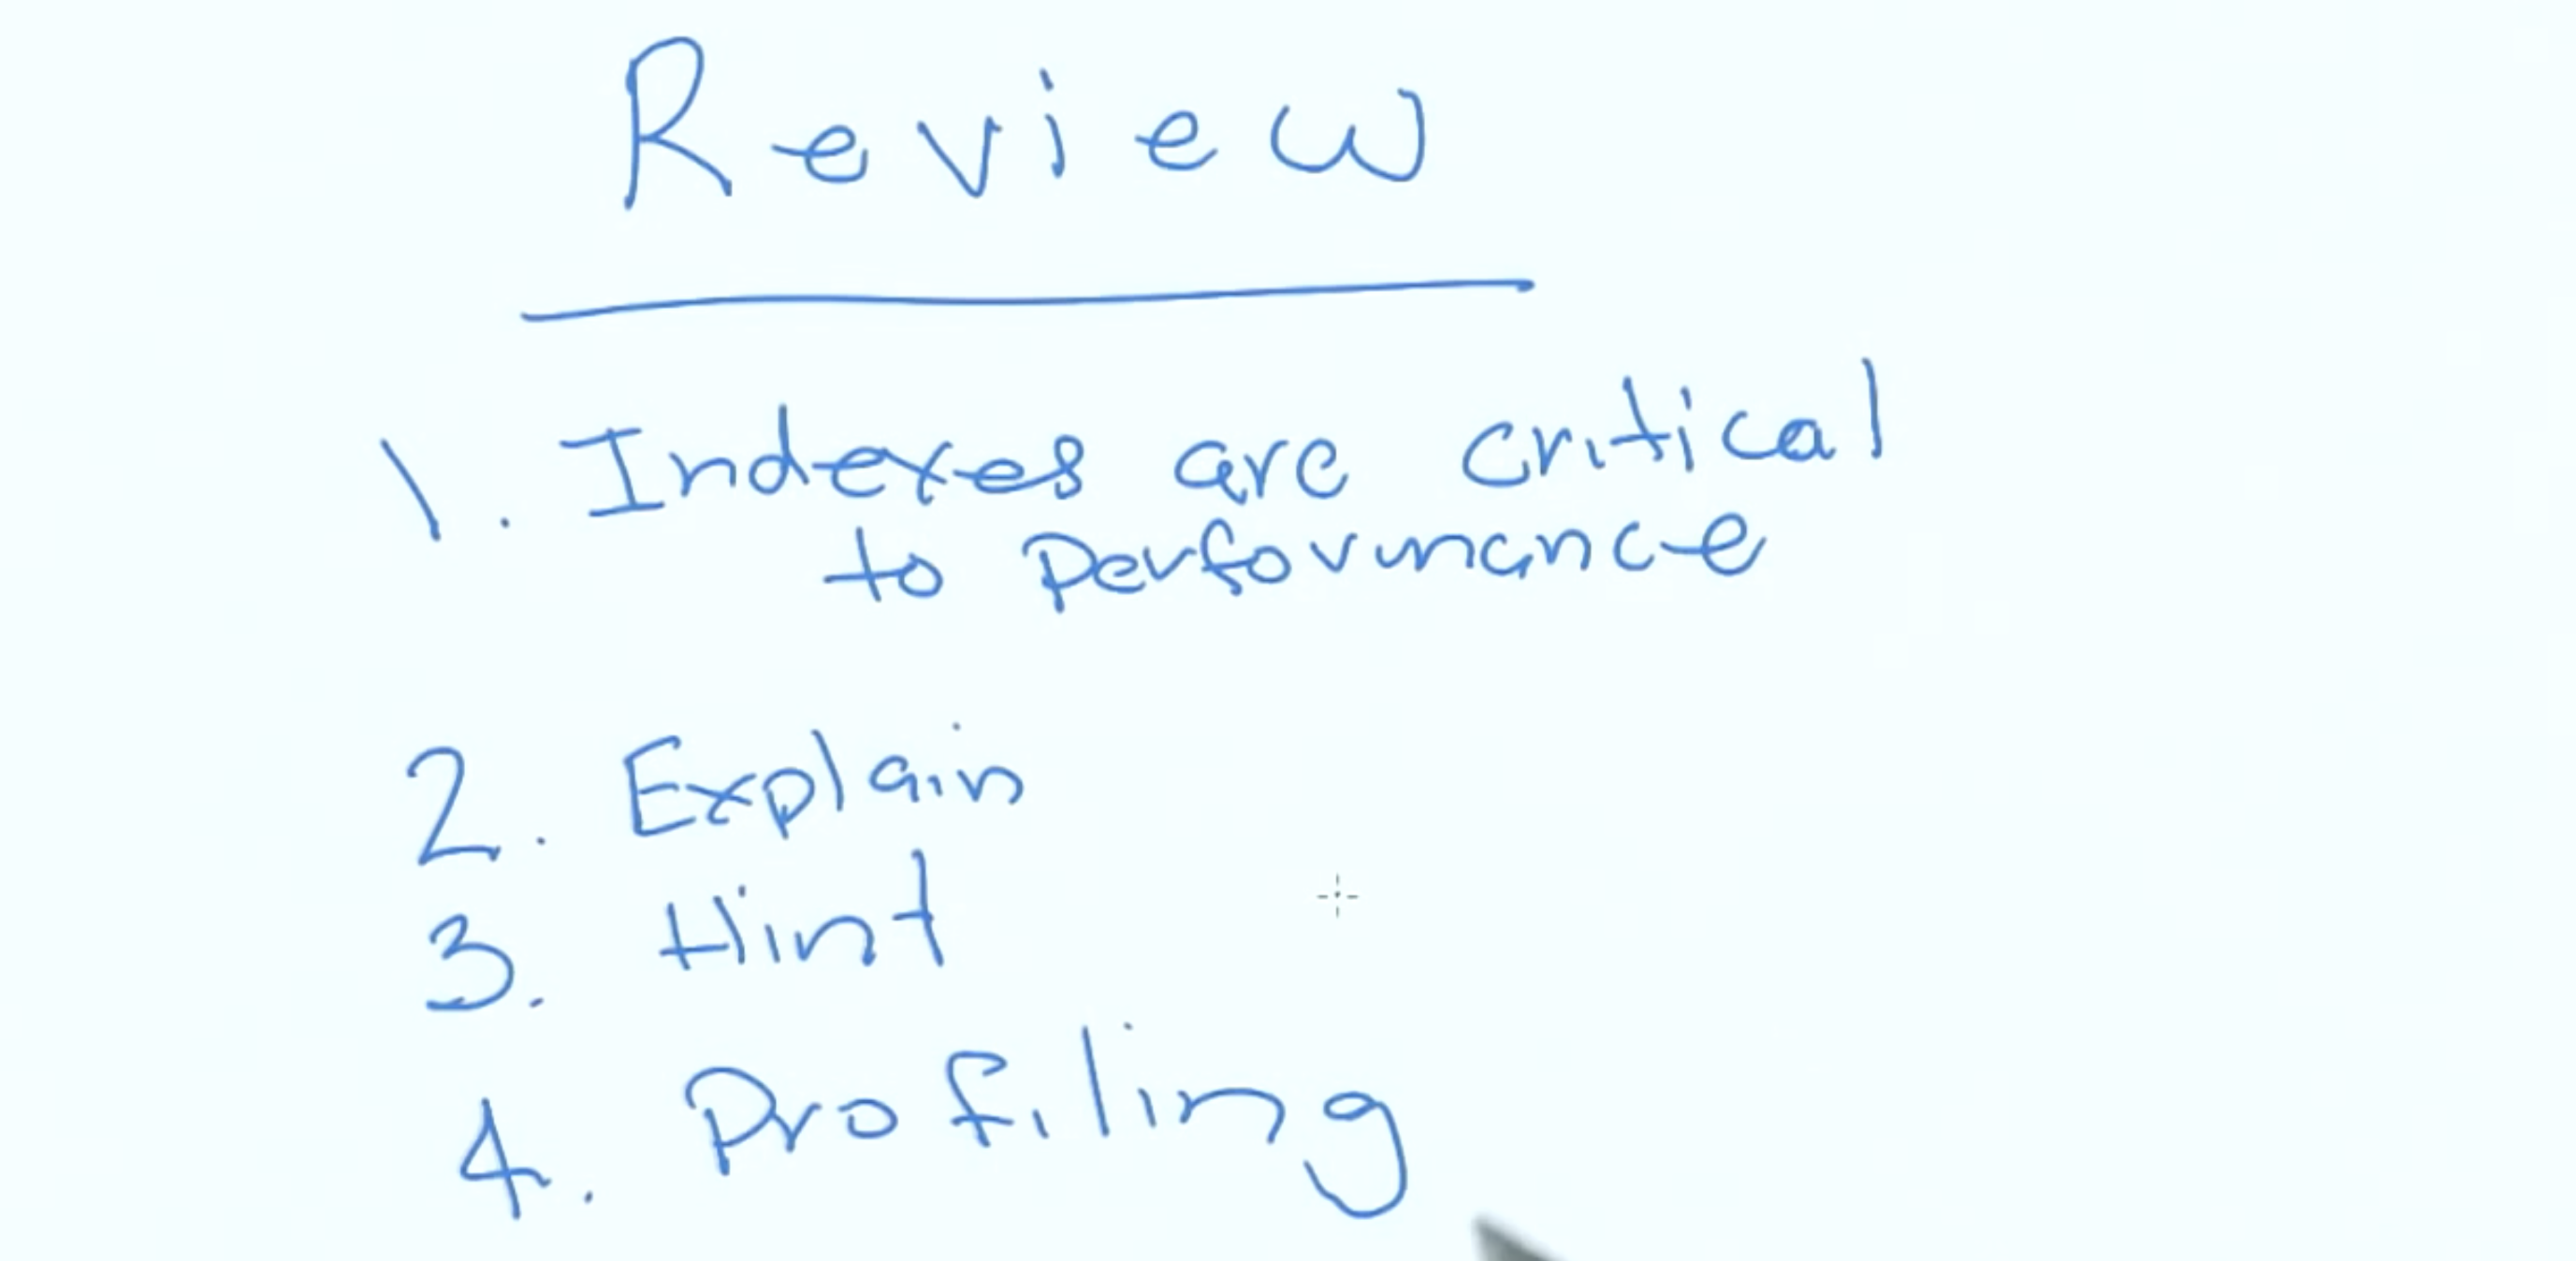 Review
1. Indexes are critical
to performance
2. Explain
3. Hint
4. Profiling